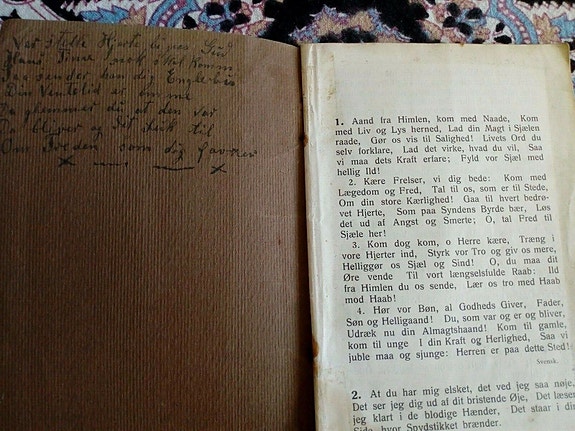 stille Hjerte
Hans Time nok skal komme
sender dig Engle bud
Din Ventetid er omme
Da glemmer du at den var
Da bliver og til
Om Freden som dig favner
1. Aand fra Himlen, kom med Naade, Kom
med Liv og Lys herned, Lad din Magt i Sjælen
raade, Gør os vis til Salighed! Livets Ord du
selv forklare, Lad det virke, hvad du vil, Saa
vi maa dets Kraft erfare; Fyld vor Sjæl med
hellig Ild!
2. Kære Frelser, vi dig bede: Kom med
Lægedom og Fred, Tal til os, som er til Stede,
Om din store Kærlighed! Gaa til hvert bedrø-
vet Hjerte, Som paa Syndens Byrde bær, Løs
det ud af Angst og Smerte; O, tal Fred til
Sjæle her!
3. Kom dog kom, o Herre kære, Træng i
vore Hjerter ind, Styrk vor Tro og giv os mere,
Helliggør os Sjæl og Sind! O, du maa dit
Øre vende Til vort længselsfulde Raab: Ild
fra Himlen du os sende, Lær os tro med Haab
mod Haab!
4. Hør vor Bøn, al Godheds Giver, Fader,
Søn og Helligaand! Du, som var og er og bliver,
Udræk nu din Almagtshaand! Kom til gamle,
kom til unge I din Kraft og Herlighed, Saa vi
juble maa og sjunge: Herren er paa dette Sted!
Svensk.
2. At du har mig elsket, det ved jeg saa nøje,
Det ser jeg dig ud af dit bristende Øje, Det læser
jeg klart i de blodige Hænder, Det staar i din
Side, hvor Spydstikket brænder.